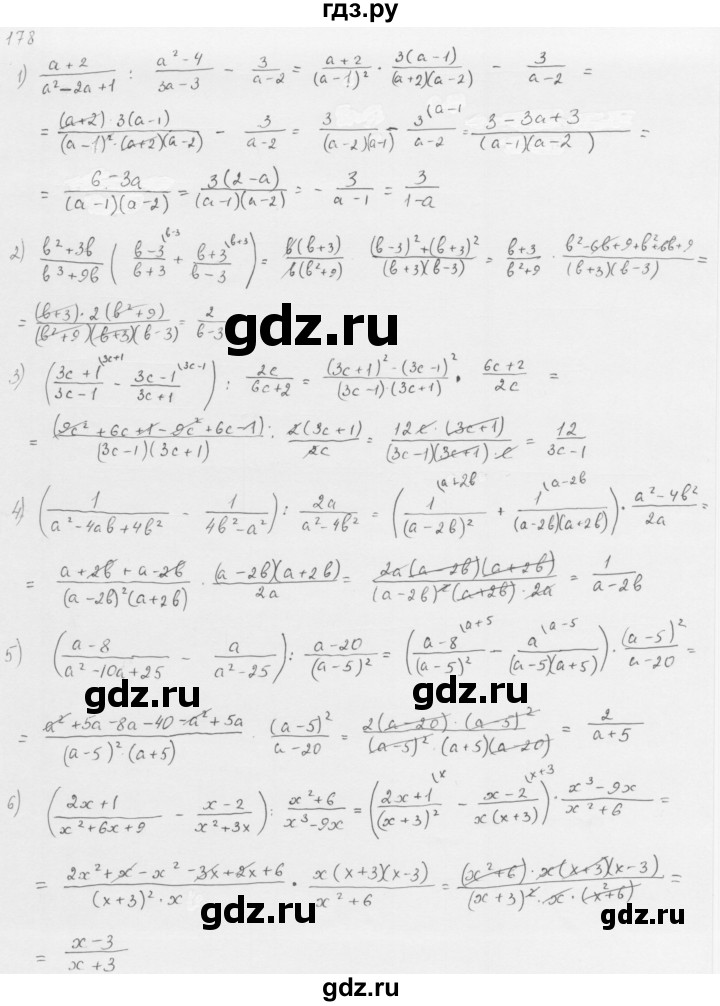 гдз.ру
178
1) (a+2)/(a²-2a+1) : (a²-4)/(3a-3) - 3/(a-2) = (a+2)/(a-1)² · 3(a-1)/((a+2)(a-2)) - 3/(a-2) =
= (a+2)·3(a-1)/((a-1)²·(a+2)(a-2)) - 3/(a-2) = 3/((a-2)(a-1)) - 3\(a-1/(a-2) = (3-3a+3)/((a-1)(a-2)) =
= (6-3a)/((a-1)(a-2)) = 3(2-a)/((a-1)(a-2)) = - 3/(a-1) = 3/(1-a)
2) (b²+3b)/(b³+9b) ((b-3)\b-3/(b+3) + (b+3)\b+3/(b-3)) = b(b+3)/(b(b²+9)) · ((b-3)²+(b+3)²)/((b+3)(b-3)) = (b+3)/(b²+9) · (b²-6b+9+b²+6b+9)/((b+3)(b-3)) =
= (b+3)·2(b²+9)/((b²+9)(b+3)(b-3)) = 2/(b-3)
gdz.ru
3) ((3c+1)\3c+1/(3c-1) - (3c-1)\3c-1/(3c+1)) : 2c/(6c+2) = ((3c+1)²-(3c-1)²)/((3c-1)·(3c+1)) · (6c+2)/2c =
= (9c²+6c+1-9c²+6c-1)/((3c-1)(3c+1)) · 2(3c+1)/2c = 12c·(3c+1)/((3c-1)(3c+1)·c) = 12/(3c-1)
gdz.ru
4) (1/(a²-4ab+4b²) - 1/(4b²-a²)) : 2a/(a²-4b²) = (1\a+2b/(a-2b)² + 1\a-2b/((a-2b)(a+2b))) · (a²-4b²)/2a =
= (a+2b+a-2b)/((a-2b)²(a+2b)) · (a-2b)(a+2b)/2a = 2a(a-2b)(a+2b)/((a-2b)²(a+2b)·2a) = 1/(a-2b)
5) ((a-8)/(a²-10a+25) - a/(a²-25)) : (a-20)/(a-5)² = ((a-8)\a+5/(a-5)² - a\a-5/((a-5)(a+5))) · (a-5)²/(a-20) =
gdz.ru gdz.ru
= (a²+5a-8a-40-a²+5a)/((a-5)²·(a+5)) · (a-5)²/(a-20) = 2(a-20)·(a-5)²/((a-5)²·(a+5)(a-20)) = 2/(a+5)
6) ((2x+1)/(x²+6x+9) - (x-2)/(x²+3x)) : (x²+6)/(x³-9x) = ((2x+1)\x/(x+3)² - (x-2)\x+3/(x(x+3))) · (x³-9x)/(x²+6) =
= (2x²+x-x²-3x+2x+6)/((x+3)²·x) · x(x+3)(x-3)/(x²+6) = (x²+6)·x(x+3)(x-3)/((x+3)²·x·(x²+6)) =
gdz.ru gdz.ru
= (x-3)/(x+3)
gdz.ru